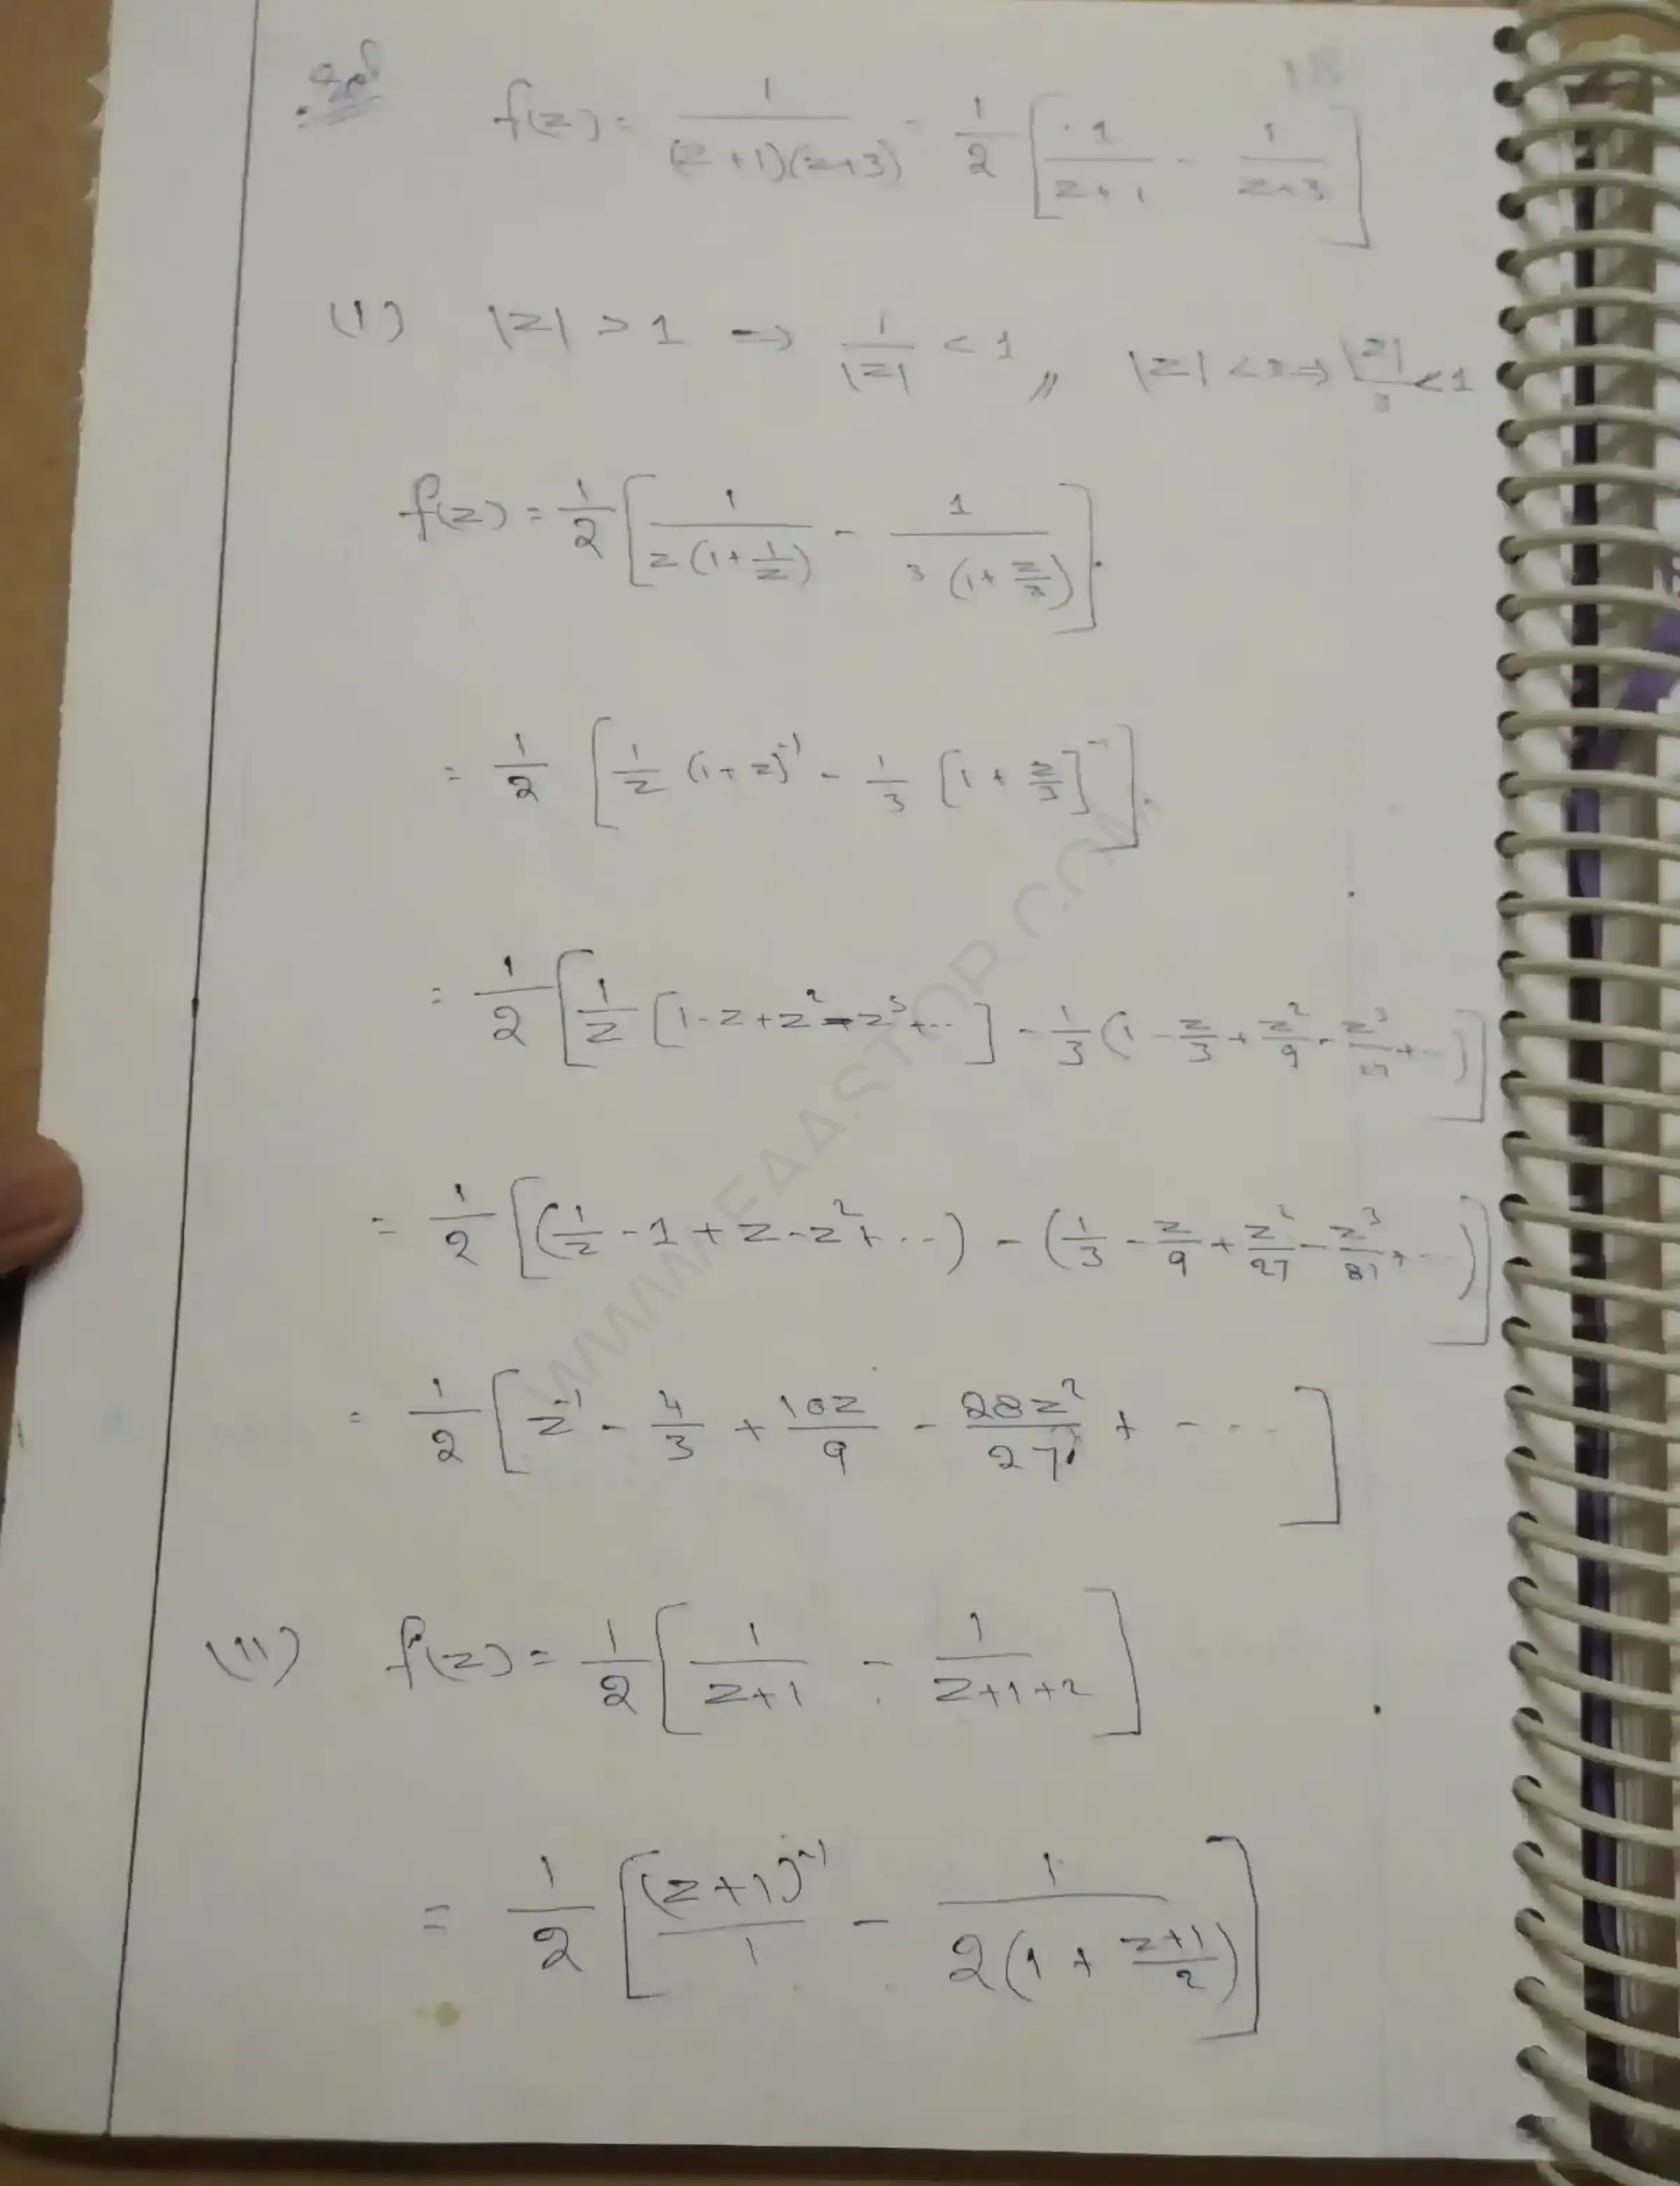 Sol
18
f(z) = 1/((z+1)(z+3)) = 1/2 [1/(z+1) - 1/(z+3)]
(I) |z| > 1 → 1/|z| < 1 ,, |z| < 3 → |z|/3 < 1
f(z) = 1/2 [1/(z(1+1/z)) - 1/(3(1+z/3))].
= 1/2 [1/z (1+z)⁻¹ - 1/3 [1+z/3]⁻¹].
= 1/2 [1/z [1-z+z²-z³+..] - 1/3 (1 - z/3 + z²/9 - z³/27 + ..)]
= 1/2 [(1/z - 1 + z - z² + ...) - (1/3 - z/9 + z²/27 - z³/81 + ...)]
= 1/2 [z⁻¹ - 4/3 + 10z/9 - 28z²/27 + - - -]
(II) f(z) = 1/2 [1/(z+1) - 1/(z+1+2)]
= 1/2 [(z+1)⁻¹/1 - 1/(2(1+(z+1)/2))]
WWW.FAASTOP.COM